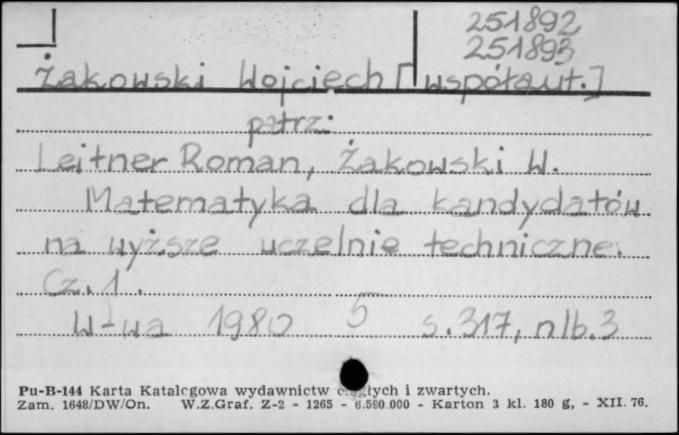 251892
251893
Żakowski Wojciech [współaut.]
patrz:
Leitner Roman, Żakowski W.
Matematyka dla kandydatów
na wyższe uczelnie techniczne.
Cz. 1.
W-wa 1980 5 s. 317, nlb. 3
Pu-B-144 Karta Katalogowa wydawnictw ciągłych i zwartych.
Zam. 1648/DW/On. W.Z.Graf. Z-2 - 1265 - 6.590.000 - Karton 3 kl. 180 g, - XII. 76.